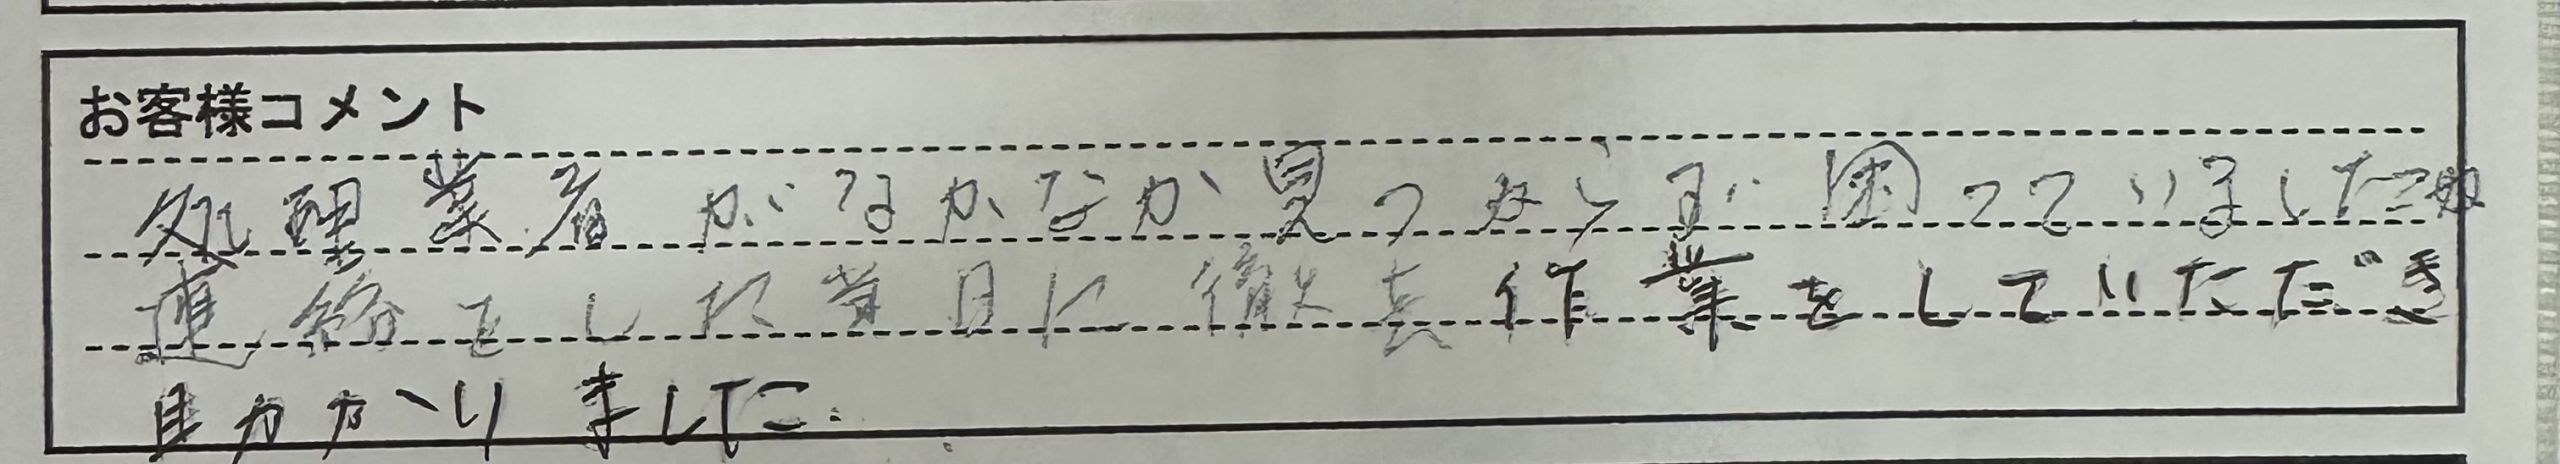 お客様コメント
処理業者がなかなか見つからず困っていました
連絡をした当日に 作業をしていただき
助かりました。